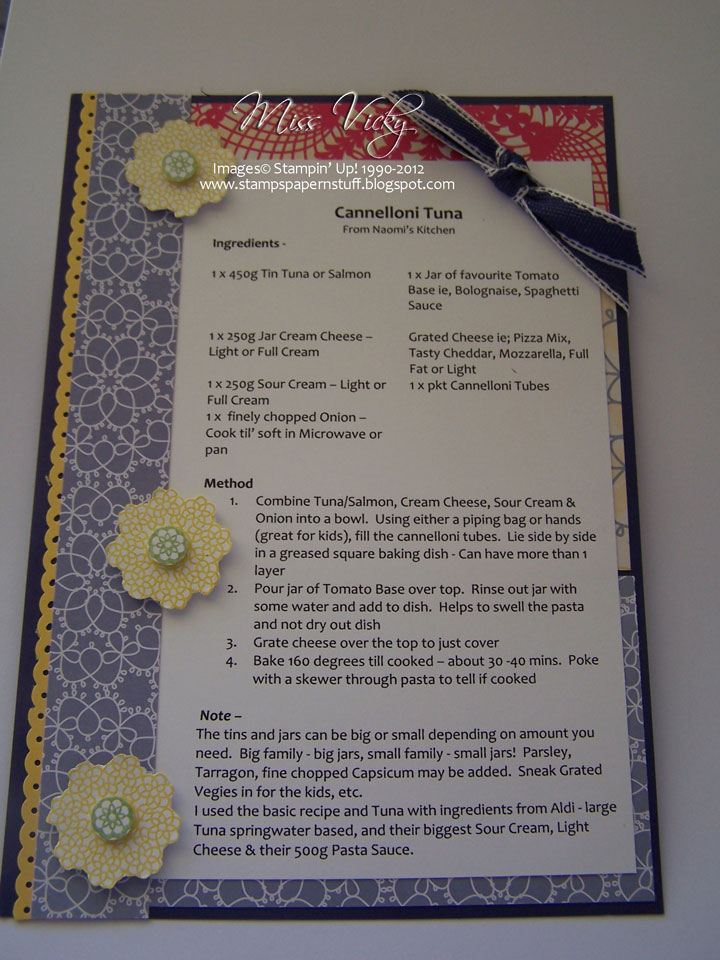 Miss Vicky
Images© Stampin' Up! 1990-2012
www.stampspapernstuff.blogspot.com
Cannelloni Tuna
From Naomi's Kitchen
Ingredients -
1 x 450g Tin Tuna or Salmon
1 x 250g Jar Cream Cheese –
Light or Full Cream
1 x 250g Sour Cream – Light or
Full Cream
1 x  finely chopped Onion –
Cook til' soft in Microwave or
pan
1 x Jar of favourite Tomato
Base ie, Bolognaise, Spaghetti
Sauce
Grated Cheese ie; Pizza Mix,
Tasty Cheddar, Mozzarella, Full
Fat or Light
1 x pkt Cannelloni Tubes
Method
1. Combine Tuna/Salmon, Cream Cheese, Sour Cream &
Onion into a bowl.  Using either a piping bag or hands
(great for kids), fill the cannelloni tubes.  Lie side by side
in a greased square baking dish - Can have more than 1
layer
2. Pour jar of Tomato Base over top.  Rinse out jar with
some water and add to dish.  Helps to swell the pasta
and not dry out dish
3. Grate cheese over the top to just cover
4. Bake 160 degrees till cooked – about 30 -40 mins.  Poke
with a skewer through pasta to tell if cooked
Note –
The tins and jars can be big or small depending on amount you
need.  Big family - big jars, small family - small jars!  Parsley,
Tarragon, fine chopped Capsicum may be added.  Sneak Grated
Vegies in for the kids, etc.
I used the basic recipe and Tuna with ingredients from Aldi - large
Tuna springwater based, and their biggest Sour Cream, Light
Cheese & their 500g Pasta Sauce.